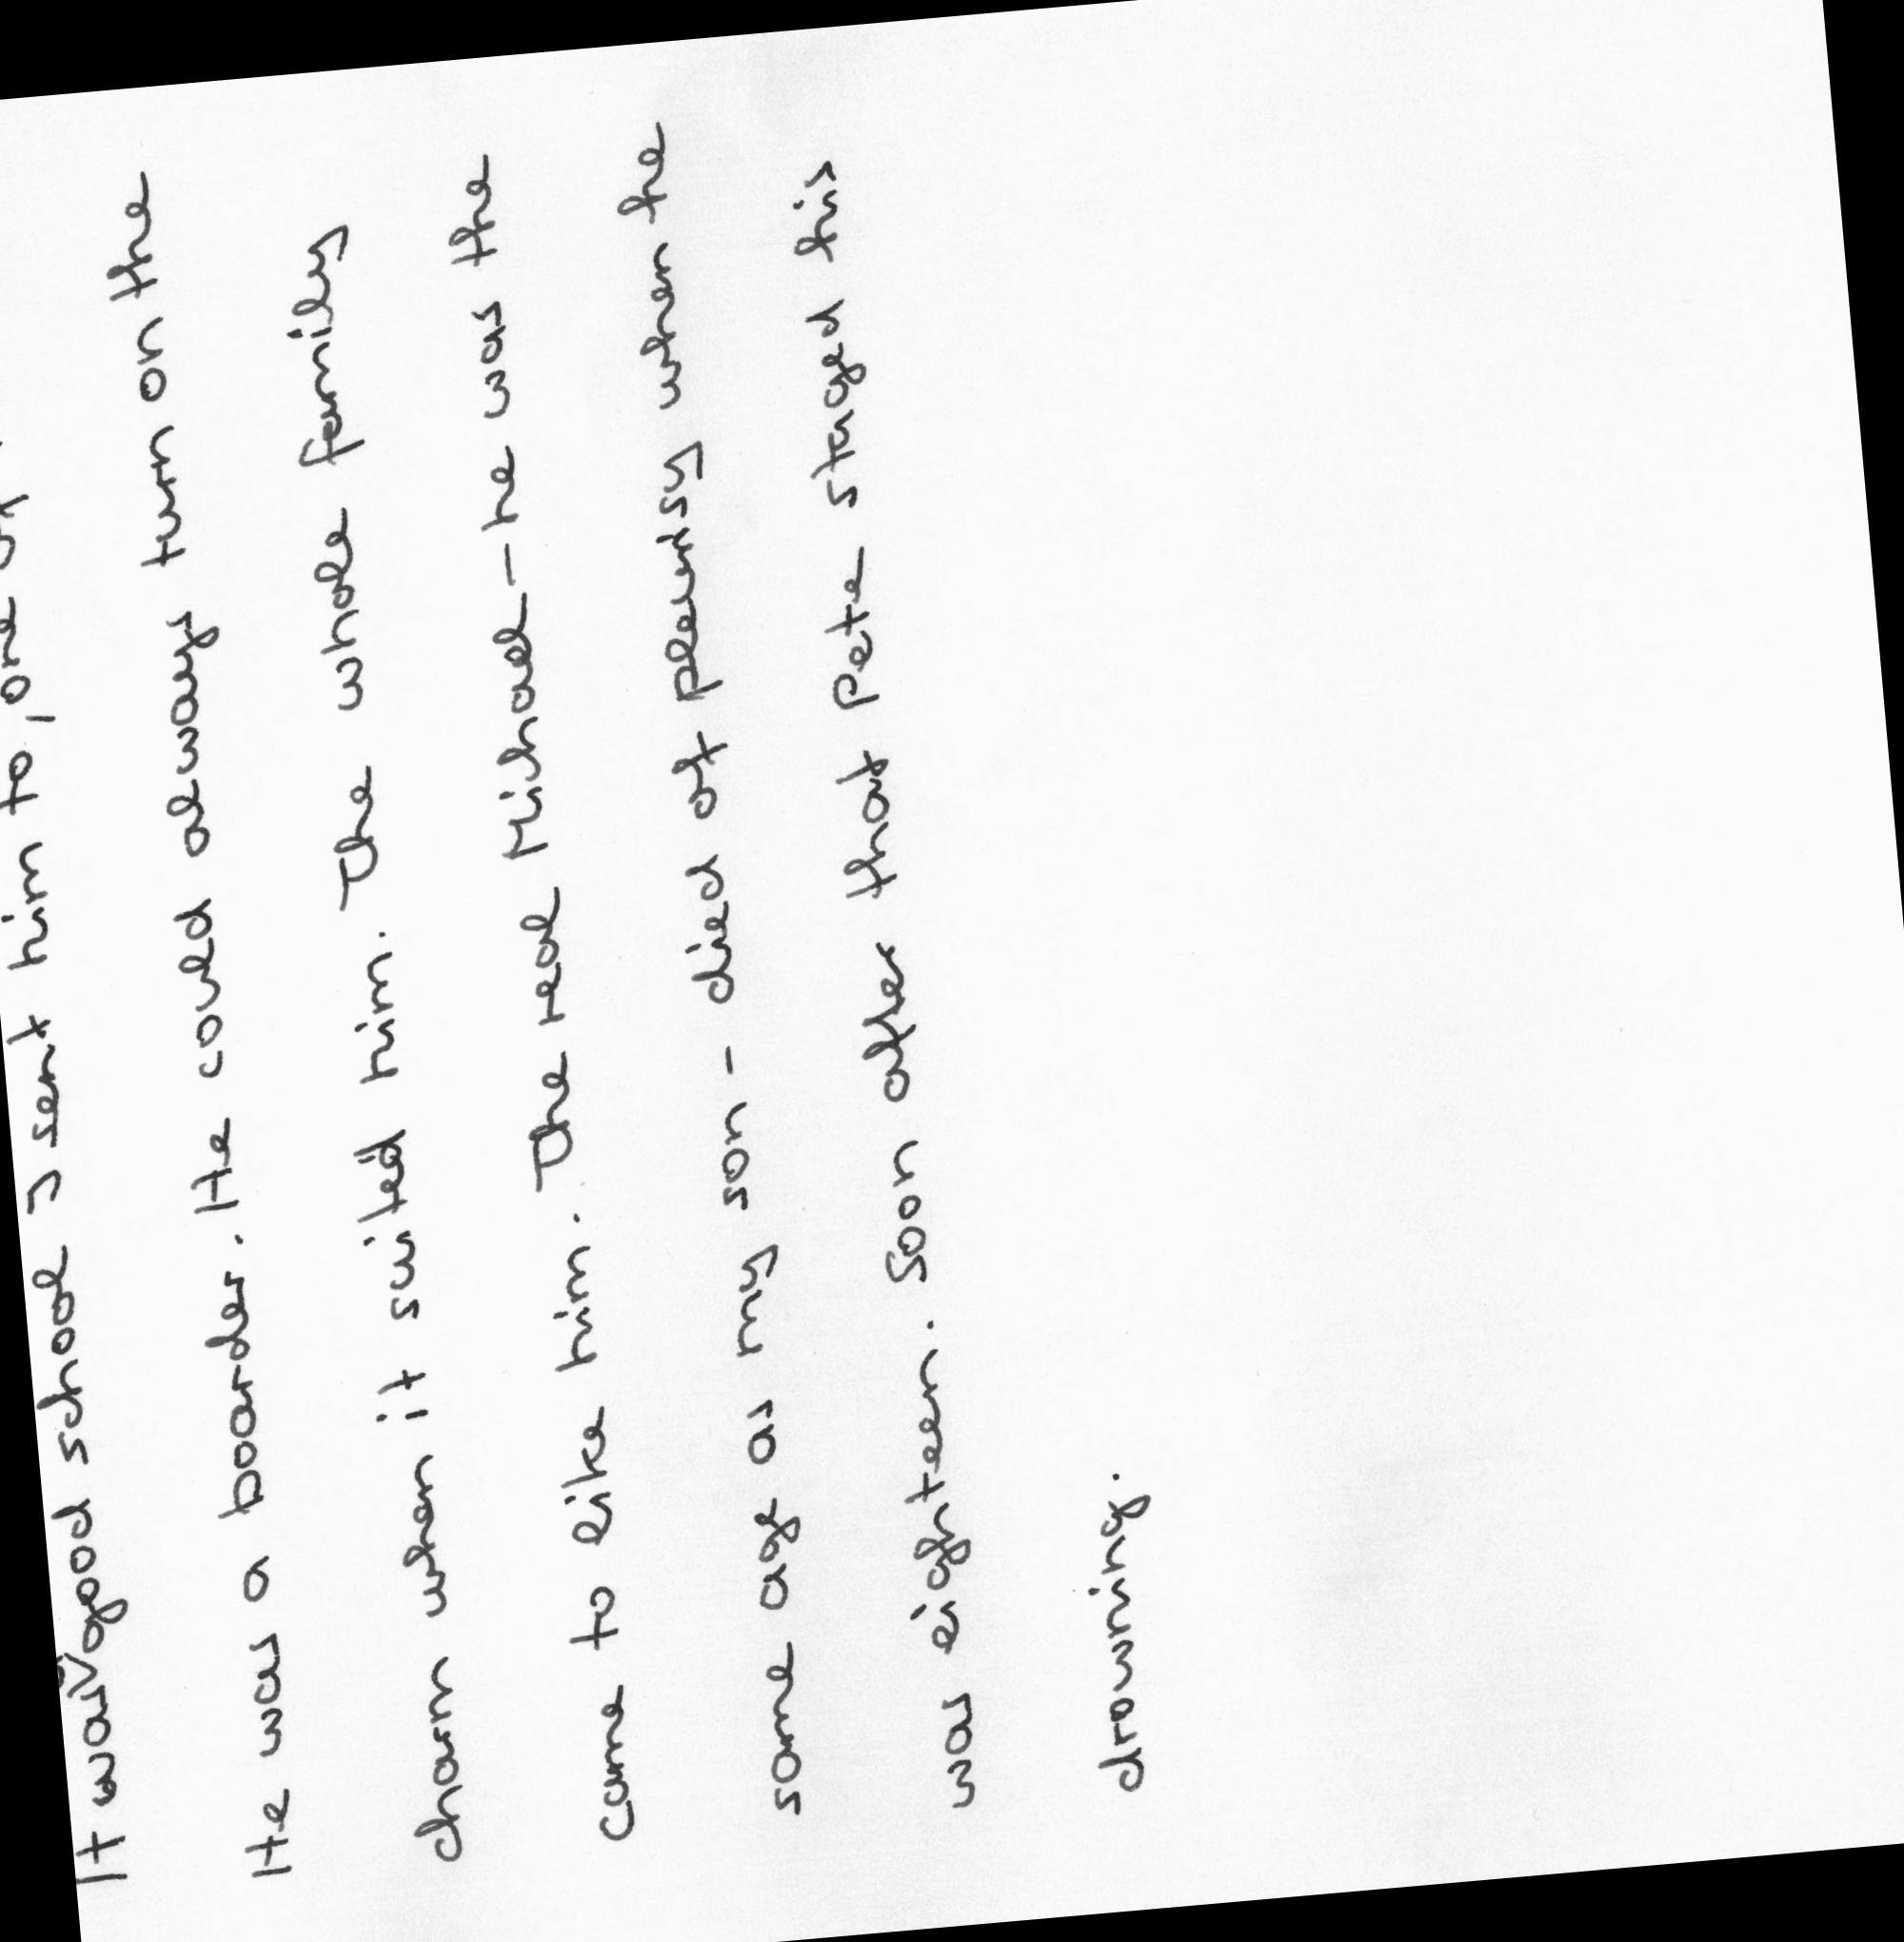 It was a good school I sent him to, one
He was a boarder. He could always turn on the
charm when it suited him. The whole family
came to like him. The real Michael - he was the
same age as my son - died of pleurisy when he
was eighteen. Soon after that Pete staged his
drowning.